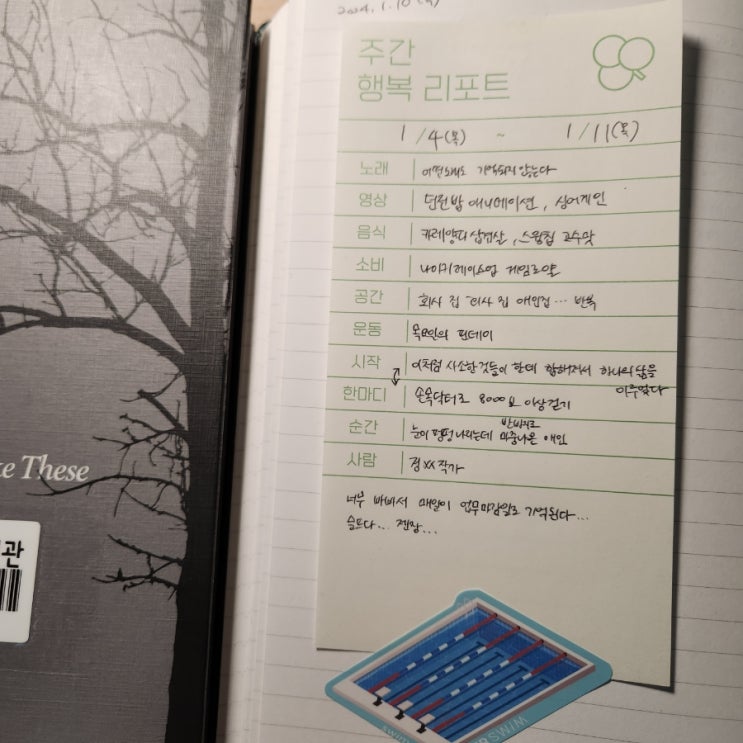 2024.1.10
주간
행복 리포트
1/4(목) ~ 1/11(목)
노래 어떤노래도 기억되지않는다
영상 던전밥 애니메이션, 싱어게인
음식 카레양디삼겹살, 스윙칩 고수맛
소비 나이키레이스업 게임로얄
공간 회사 집 회사 집 애인집... 반복
운동 목요일의 펀데이
시작 이처럼 사소한것들이 한데 합해져서 하나의 삶을
이루었다
한마디 손목닥터로 8000보 이상걷기
반바지로
순간 눈이 펑펑나리는데 마중나온 애인
사람 정xx작가
너무 바빠서 매일이 업무마감일로 기억된다...
슬프다... 젠장...
ke These
관
swim
SWIM